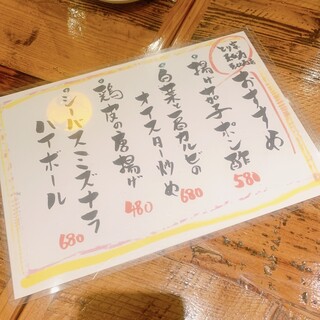 おすすめ
揚げ茄子ポン酢
580
白菜と豚カルビの
オイスター炒め
680
鶏皮の唐揚げ
480
シーバスミズナラ
ハイボール
680